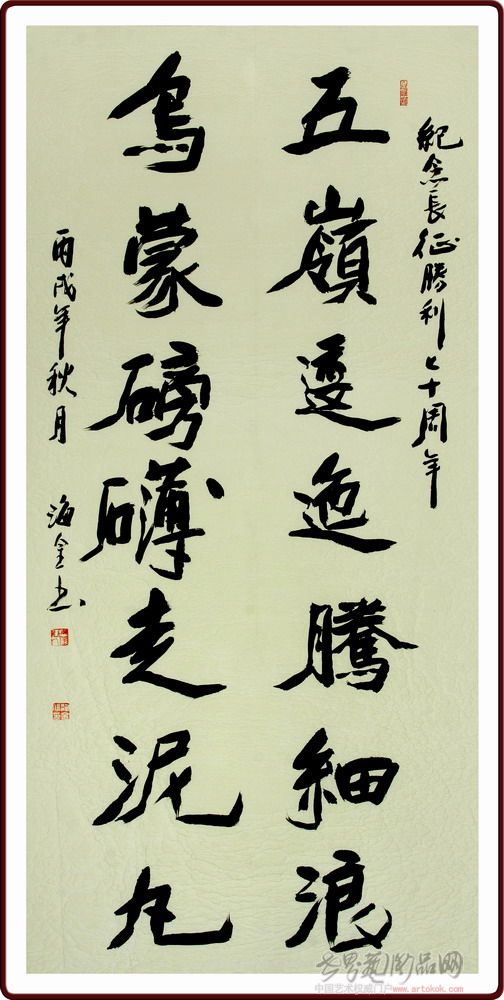 紀念長征勝利七十周年
五嶺逶迤騰細浪
烏蒙磅礴走泥丸
丙戌年秋月 海金书
中国艺术权威门户 www.artokok.com